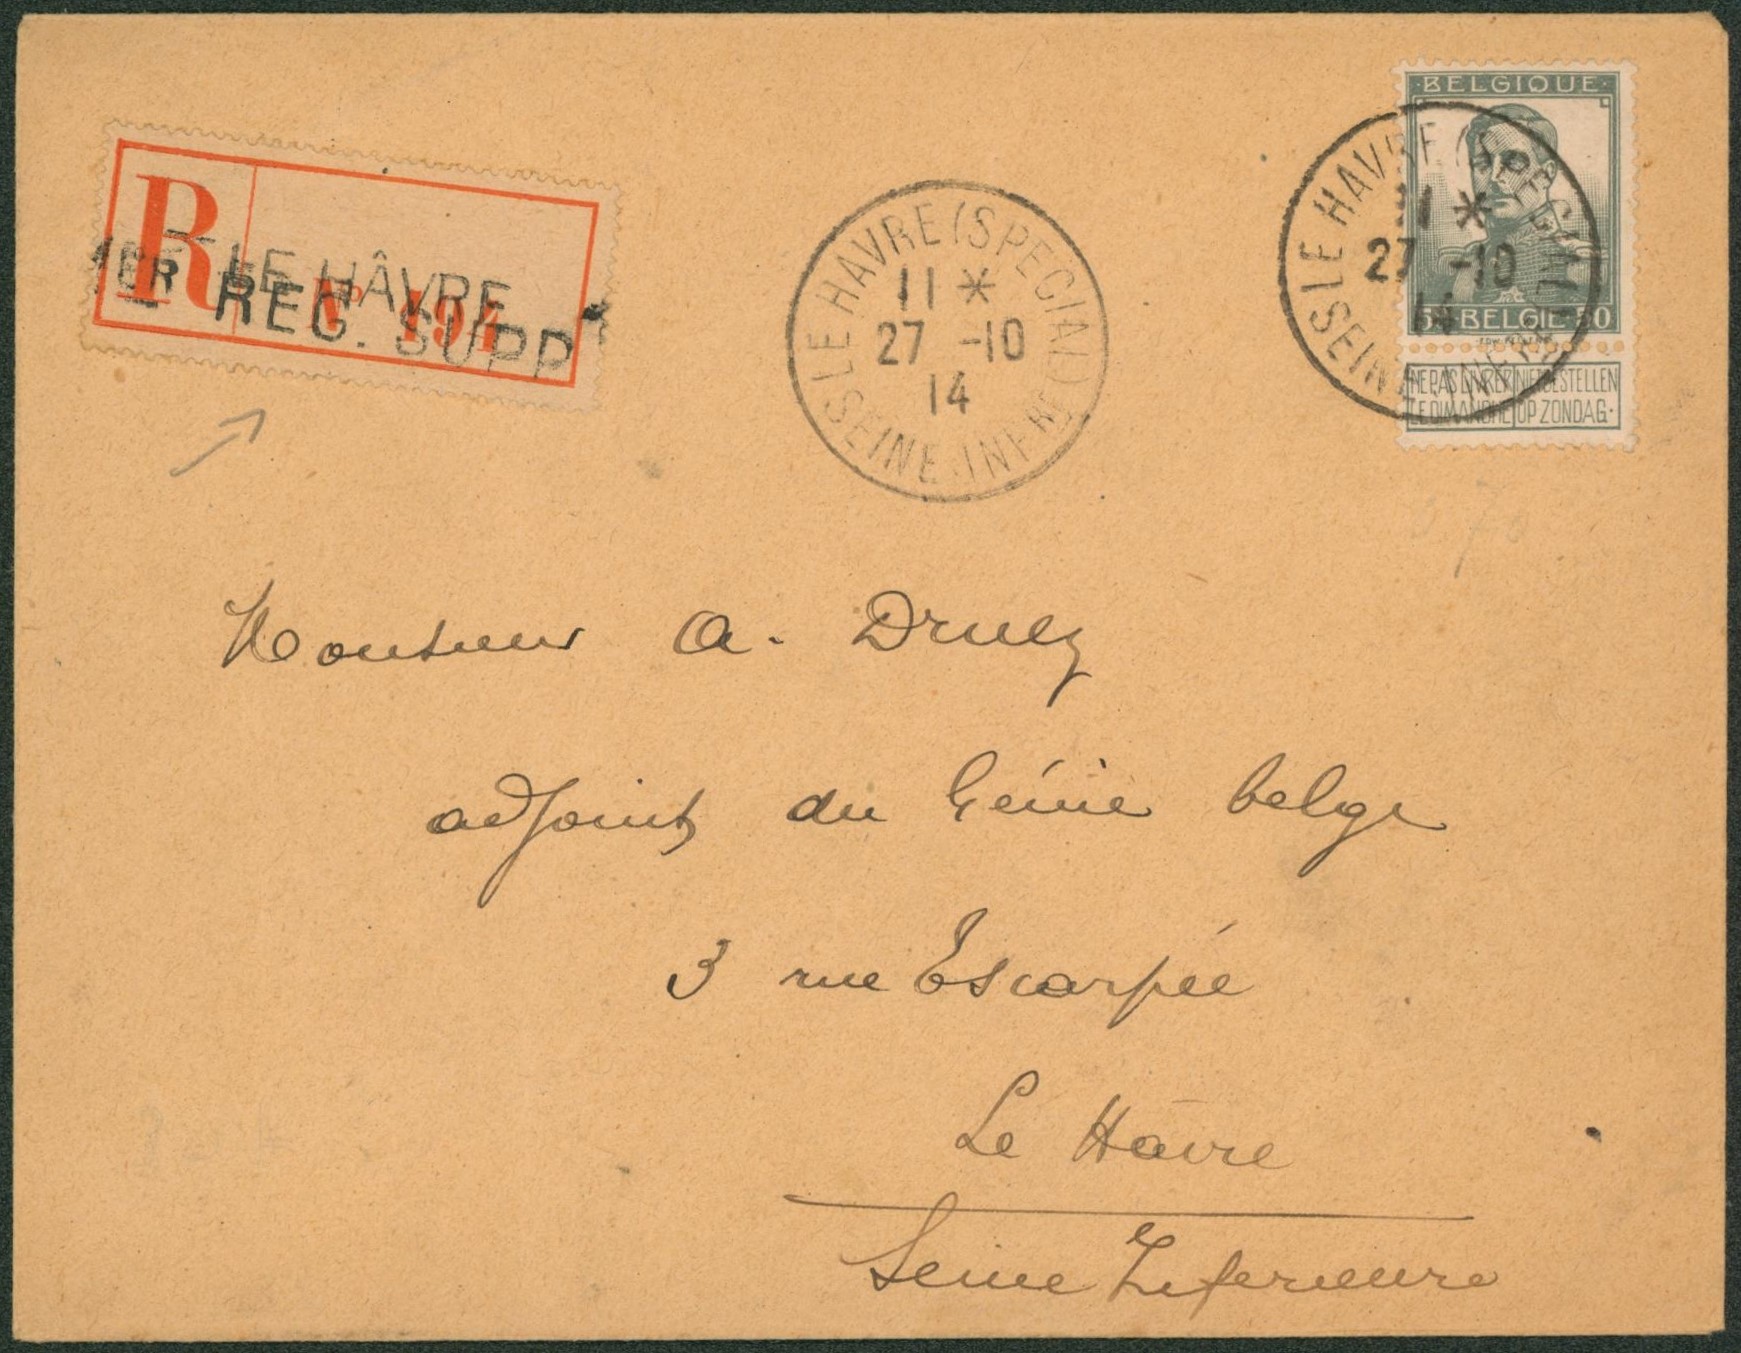 R
LE HÂVRE
Nº 194
1ER REG. SUPP
LE HAVRE (SPECIAL)
11 *
27 -10
14
(SEINE INFRE)
BELGIQUE
BELGIE 50
NE PAS LIVRER NIET BESTELLEN
LE DIMANCHE OP ZONDAG.
LE HAVRE (SPECIAL)
11 *
27 -10
14
(SEINE INFRE)
Monsieur A. Druez
adjoint du Génie belge
3 rue Escarpée
Le Havre
Seine Inferieure